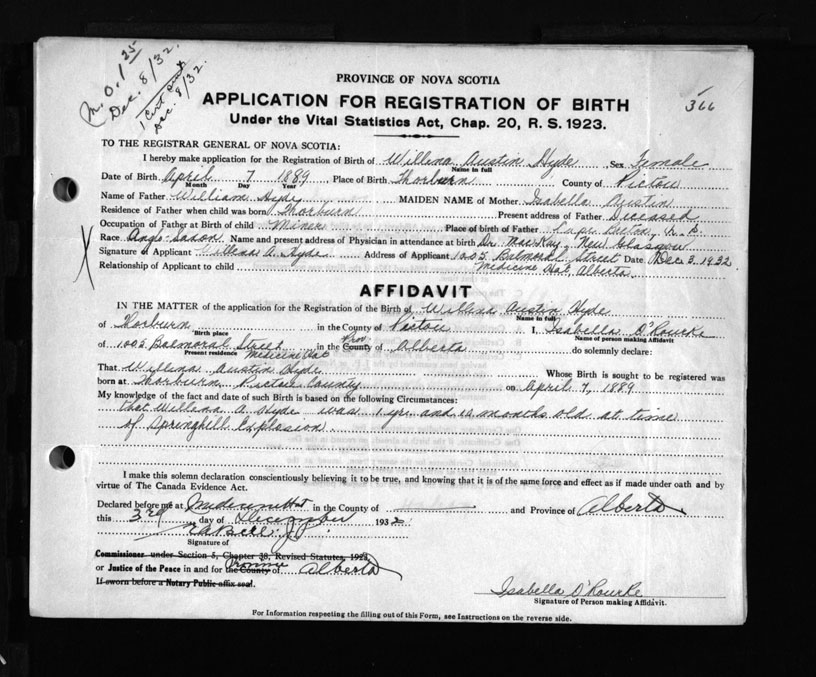 M.O. 1 25
Dec. 8/32.
1 Cert
Dec. 8/32.
366
PROVINCE OF NOVA SCOTIA
APPLICATION FOR REGISTRATION OF BIRTH
Under the Vital Statistics Act, Chap. 20, R. S. 1923.
TO THE REGISTRAR GENERAL OF NOVA SCOTIA:
I hereby make application for the Registration of Birth of Willena Austin Hyde Sex Female
Name in full
Date of Birth April 7 1889 Place of Birth Thorburn County of Pictou
Month Day Year
Name of Father William Hyde MAIDEN NAME of Mother Isabella Austin
Residence of Father when child was born Thorburn Present address of Father Deceased
Occupation of Father at Birth of child Miner Place of birth of Father Cape Breton, N.S.
Race Anglo-Saxon Name and present address of Physician in attendance at birth Dr. MacKay, New Glasgow
Signature of Applicant Willena A. Hyde Address of Applicant 1005 Balmoral Street Date Dec 3, 1932
Relationship of Applicant to child Medicine Hat, Alberta
AFFIDAVIT
IN THE MATTER of the application for the Registration of the Birth of Willena Austin Hyde
Name in full
of Thorburn in the County of Pictou I, Isabella O'Rourke
Birth place Name of person making Affidavit
of 1005 Balmoral Street Medicine Hat in the Prov County of Alberta do solemnly declare:
Present residence
That Willena Austin Hyde Whose Birth is sought to be registered was
born at Thorburn Pictou County on April 7, 1889
My knowledge of the fact and date of such Birth is based on the following Circumstances:
that Willena A. Hyde was 1 yr and 10 months old at time
of Springhill Explosion
I make this solemn declaration conscientiously believing it to be true, and knowing that it is of the same force and effect as if made under oath and by
virtue of The Canada Evidence Act.
Declared before me at Medicine Hat in the County of and Province of Alberta
this 3rd day of December 1932
J.P.
Signature of
Commissioner under Section 5, Chapter 38, Revised Statutes, 1923,
or Justice of the Peace in and for the County of Province Alberta
If sworn before a Notary Public affix seal.
Isabella O'Rourke
Signature of Person making Affidavit.
For Information respecting the filling out of this Form, see Instructions on the reverse side.